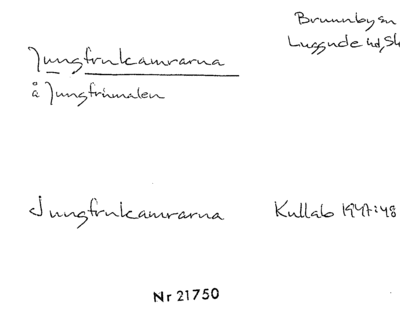 Brunnby sn
Luggude hd, Sk
Jungfrukamrarna
å Jungfrumalen
Jungfrukamrarna
Kullab 1947:48
Nr 21750